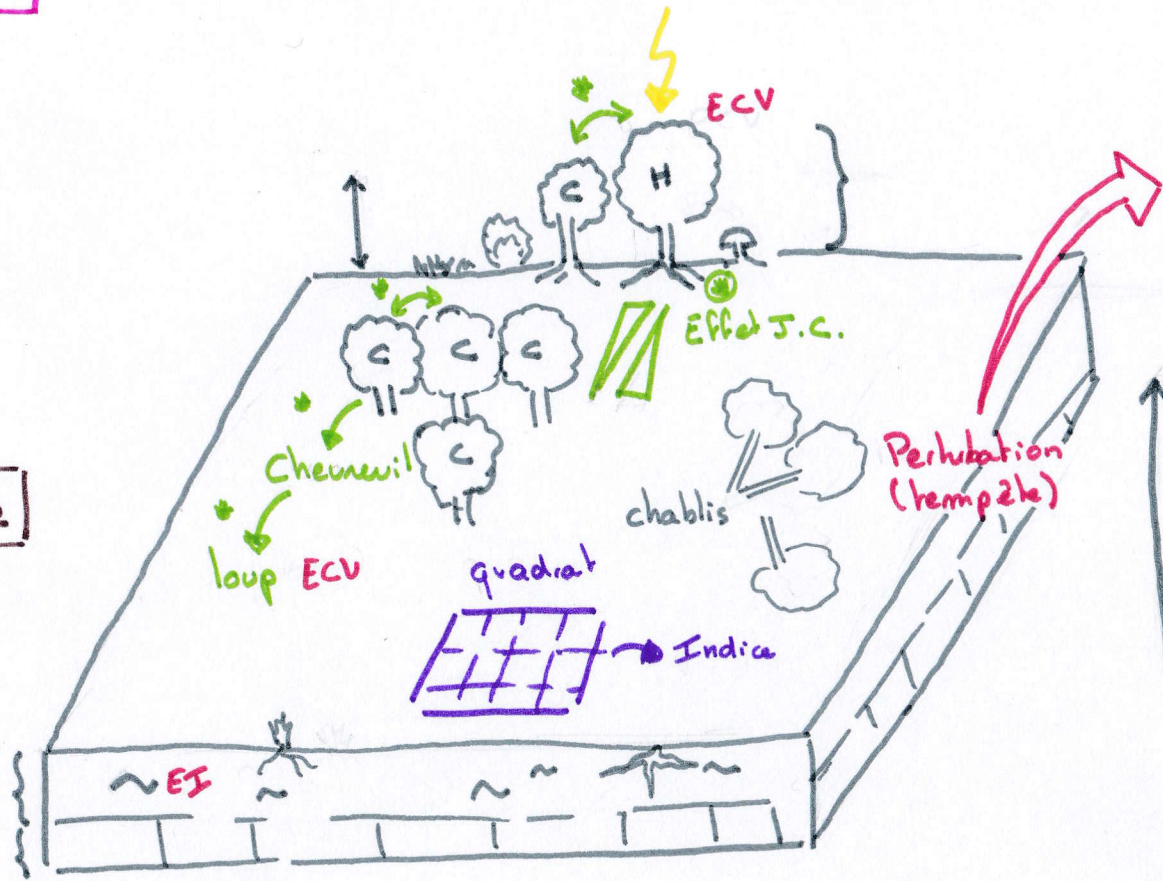 ECV
C
H
Effet J.C.
C
C
C
C
Chevreuil
loup ECV
chablis
Pertubation
(tempête)
quadrat
Indice
EI